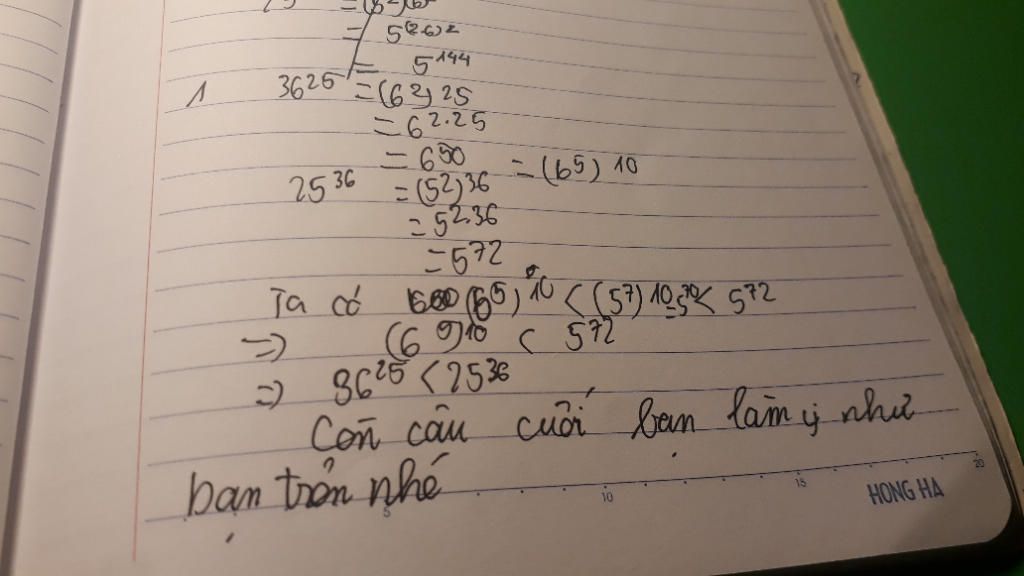 = 5(2.6)2
= 5144
1 3625 = (62)25
= 62.25
= 650 = (65)10
2536 = (52)36
= 52.36
= 572
Ta có (65)10 < (57)10 = 570 < 572
=> (65)10 < 572
=> 3625 < 2536
Còn câu cuối bạn làm y như
bạn trên nhé
5 10 15 20
HONG HA